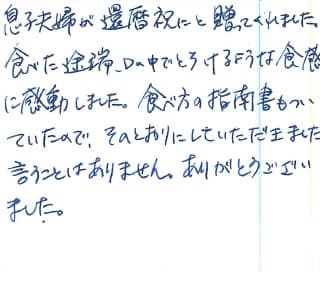 息子夫婦が還暦祝にと贈ってくれました。
食べた途端、口の中でとろけるような食感
に感動しました。食べ方の指南書もつい
ていたので、そのとおりにしていただきました
言うことはありません。ありがとうござい
ました。